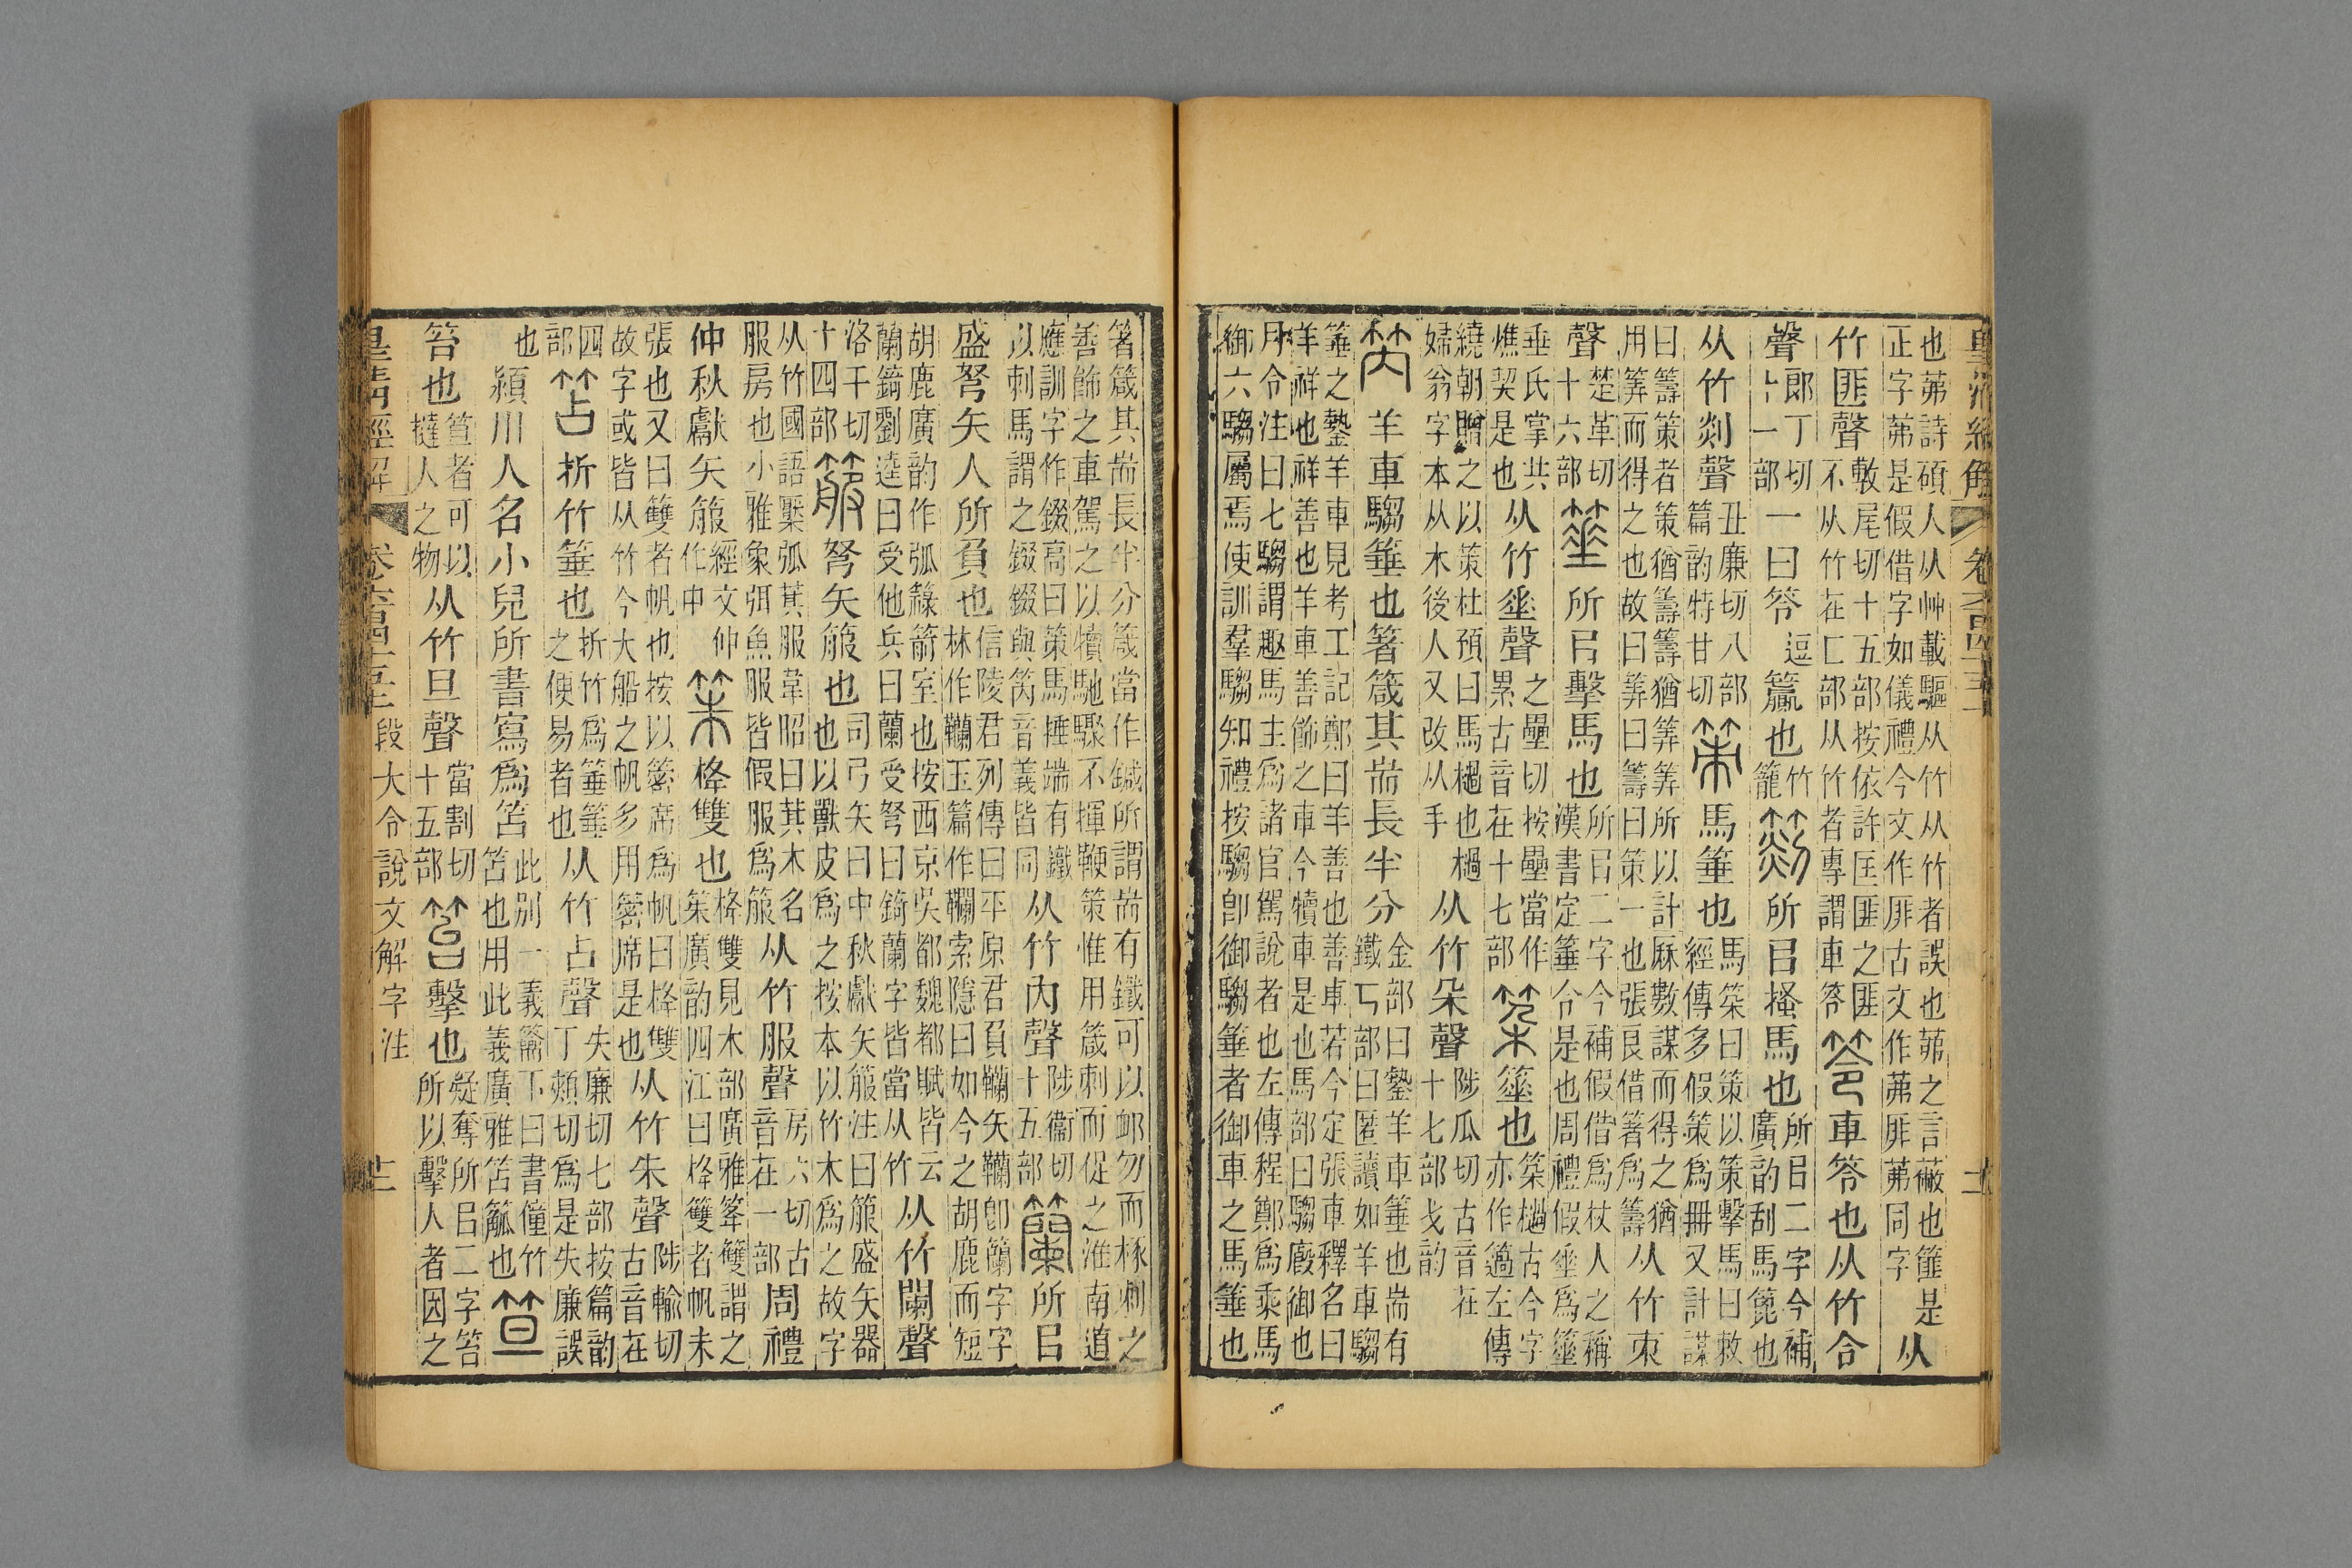 皇清經解 卷六百四十五上 十一
也茀詩碩人从艸載驅从竹从竹者誤也茀之言蔽也篚是
正字茀是假借字如儀禮今文作厞古文作茀厞茀同字
从
竹匪聲
敷尾切十五部按依許匡匪之匪
不从竹在匚部从竹者專謂車笭
笭車笭也从竹令
聲
郎丁切
十一部
一曰笭
逗
籯也
竹
籠
䈉所㠯搔馬也
所㠯二字今補
廣韵刮馬篦也
从竹剡聲
丑廉切八部
篇韵特甘切
策馬箠也
馬箠曰策以策擊馬曰敕
經傳多假策爲冊又計謀
曰籌策者策猶籌籌猶筭筭所以計厤數謀而得之猶
用筭而得之也故曰筭曰籌曰策一也張良借箸爲籌
从竹朿
聲
楚革切
十六部
箠所㠯擊馬也
所㠯二字今補假借爲杖人之稱
漢書定箠令是也周禮假垂爲箠
垂氏掌共
燋契是也
从竹垂聲
之壘切按壘當作
累古音在十七部
箠也
檛古今字
亦作簻左傳
繞朝贈之以策杜預曰馬檛也檛
婦翁字本从木後人又改从手
从竹朶聲
陟瓜切古音在
十七部戈韵
笍羊車騶箠也箸箴其耑長半分
金部曰鏊羊車箠也耑有
鐵匸部曰匿讀如羊車騶
箠之鏊羊車見考工記鄭曰羊善也善車若今定張車釋名曰
羊祥也祥善也羊車善飾之車今犢車是也馬部曰騶廏御也
月令注曰七騶謂趣馬主爲諸官駕說者也左傳程鄭爲乘馬
御六騶屬焉使訓羣騶知禮按騶卽御騶箠者御車之馬箠也
箸箴其耑長半分箴當作鍼所謂耑有鐵可以卹勿而椓刺之
善飾之車駕之以犢馳驟不揮鞭策惟用箴刺而促之淮南道
應訓字作錣高曰策馬捶端有鐵
以刺馬謂之錣錣與笍音義皆同
从竹內聲
陟衞切
十五部
籣所㠯
盛弩矢人所負也
信陵君列傳曰平原君負韊矢韊卽籣字字
林作韊玉篇作韊索隱曰如今之胡鹿而短
胡鹿廣韵作弧簶箭室也按西京吳都魏都賦皆云
蘭錡劉逵曰受他兵曰蘭受弩曰錡蘭字皆當从竹
从竹闌聲
洛干切
十四部
箙弩矢箙也
司弓矢曰中秋獻矢箙注曰箙盛矢器
也以獸皮爲之按本以竹木爲之故字
从竹國語檿弧萁服韋昭曰萁木名
服房也小雅象弭魚服服皆假服爲箙
从竹服聲
房六切古
音在一部
周禮
仲秋獻矢箙
經文仲
作中
栙雙也
栙雙見木部廣雅䉶謂之
廣韵四江曰栙䉶者帆未
張也又曰䉶者帆也按以䉁席爲帆曰栙雙
故字或皆从竹今大船之帆多用䉁席是也
从竹朱聲
陟輸切
古音在
四
部
笘折竹箠也
折竹爲箠箠
之便易者也
从竹占聲
失廉切七部按篇韵
丁頰切爲是失廉誤
也
潁川人名小兒所書寫爲笘
此別一義籥下曰書僮竹
笘也用此義廣雅笘觚也
笪
笞也
笪者可以
撻人之物
从竹旦聲
當割切
十五部
笞擊也
疑奪所㠯二字笞
所以擊人者因之
皇清經解 卷六百四十五上 段大令說文解字注 十二